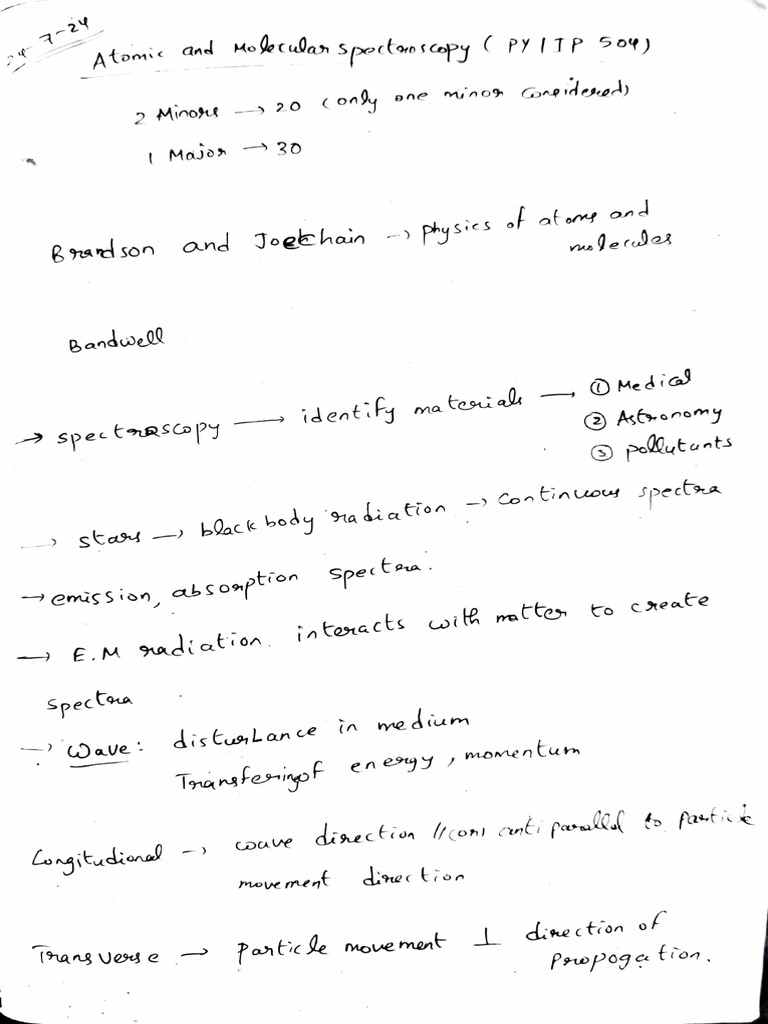 24-7-24
Atomic and Molecular spectroscopy ( PY/TP 504)
2 Minors → 20 (only one minor considered)
1 Major → 30
Brandson and Joetchain → physics of atoms and
molecules
Bandwell
→ spectroscopy → identify materials → ① Medical
② Astronomy
③ pollutants
→ stars → black body radiation → continuous spectra
→ emission, absorption spectra.
→ E.M radiation interacts with matter to create
spectra
→ Wave: disturbance in medium
Transfering of energy, momentum
Longitudional → wave direction // (or) anti parallel to particle
movement direction
Transverse → particle movement ⊥ direction of
propogation.